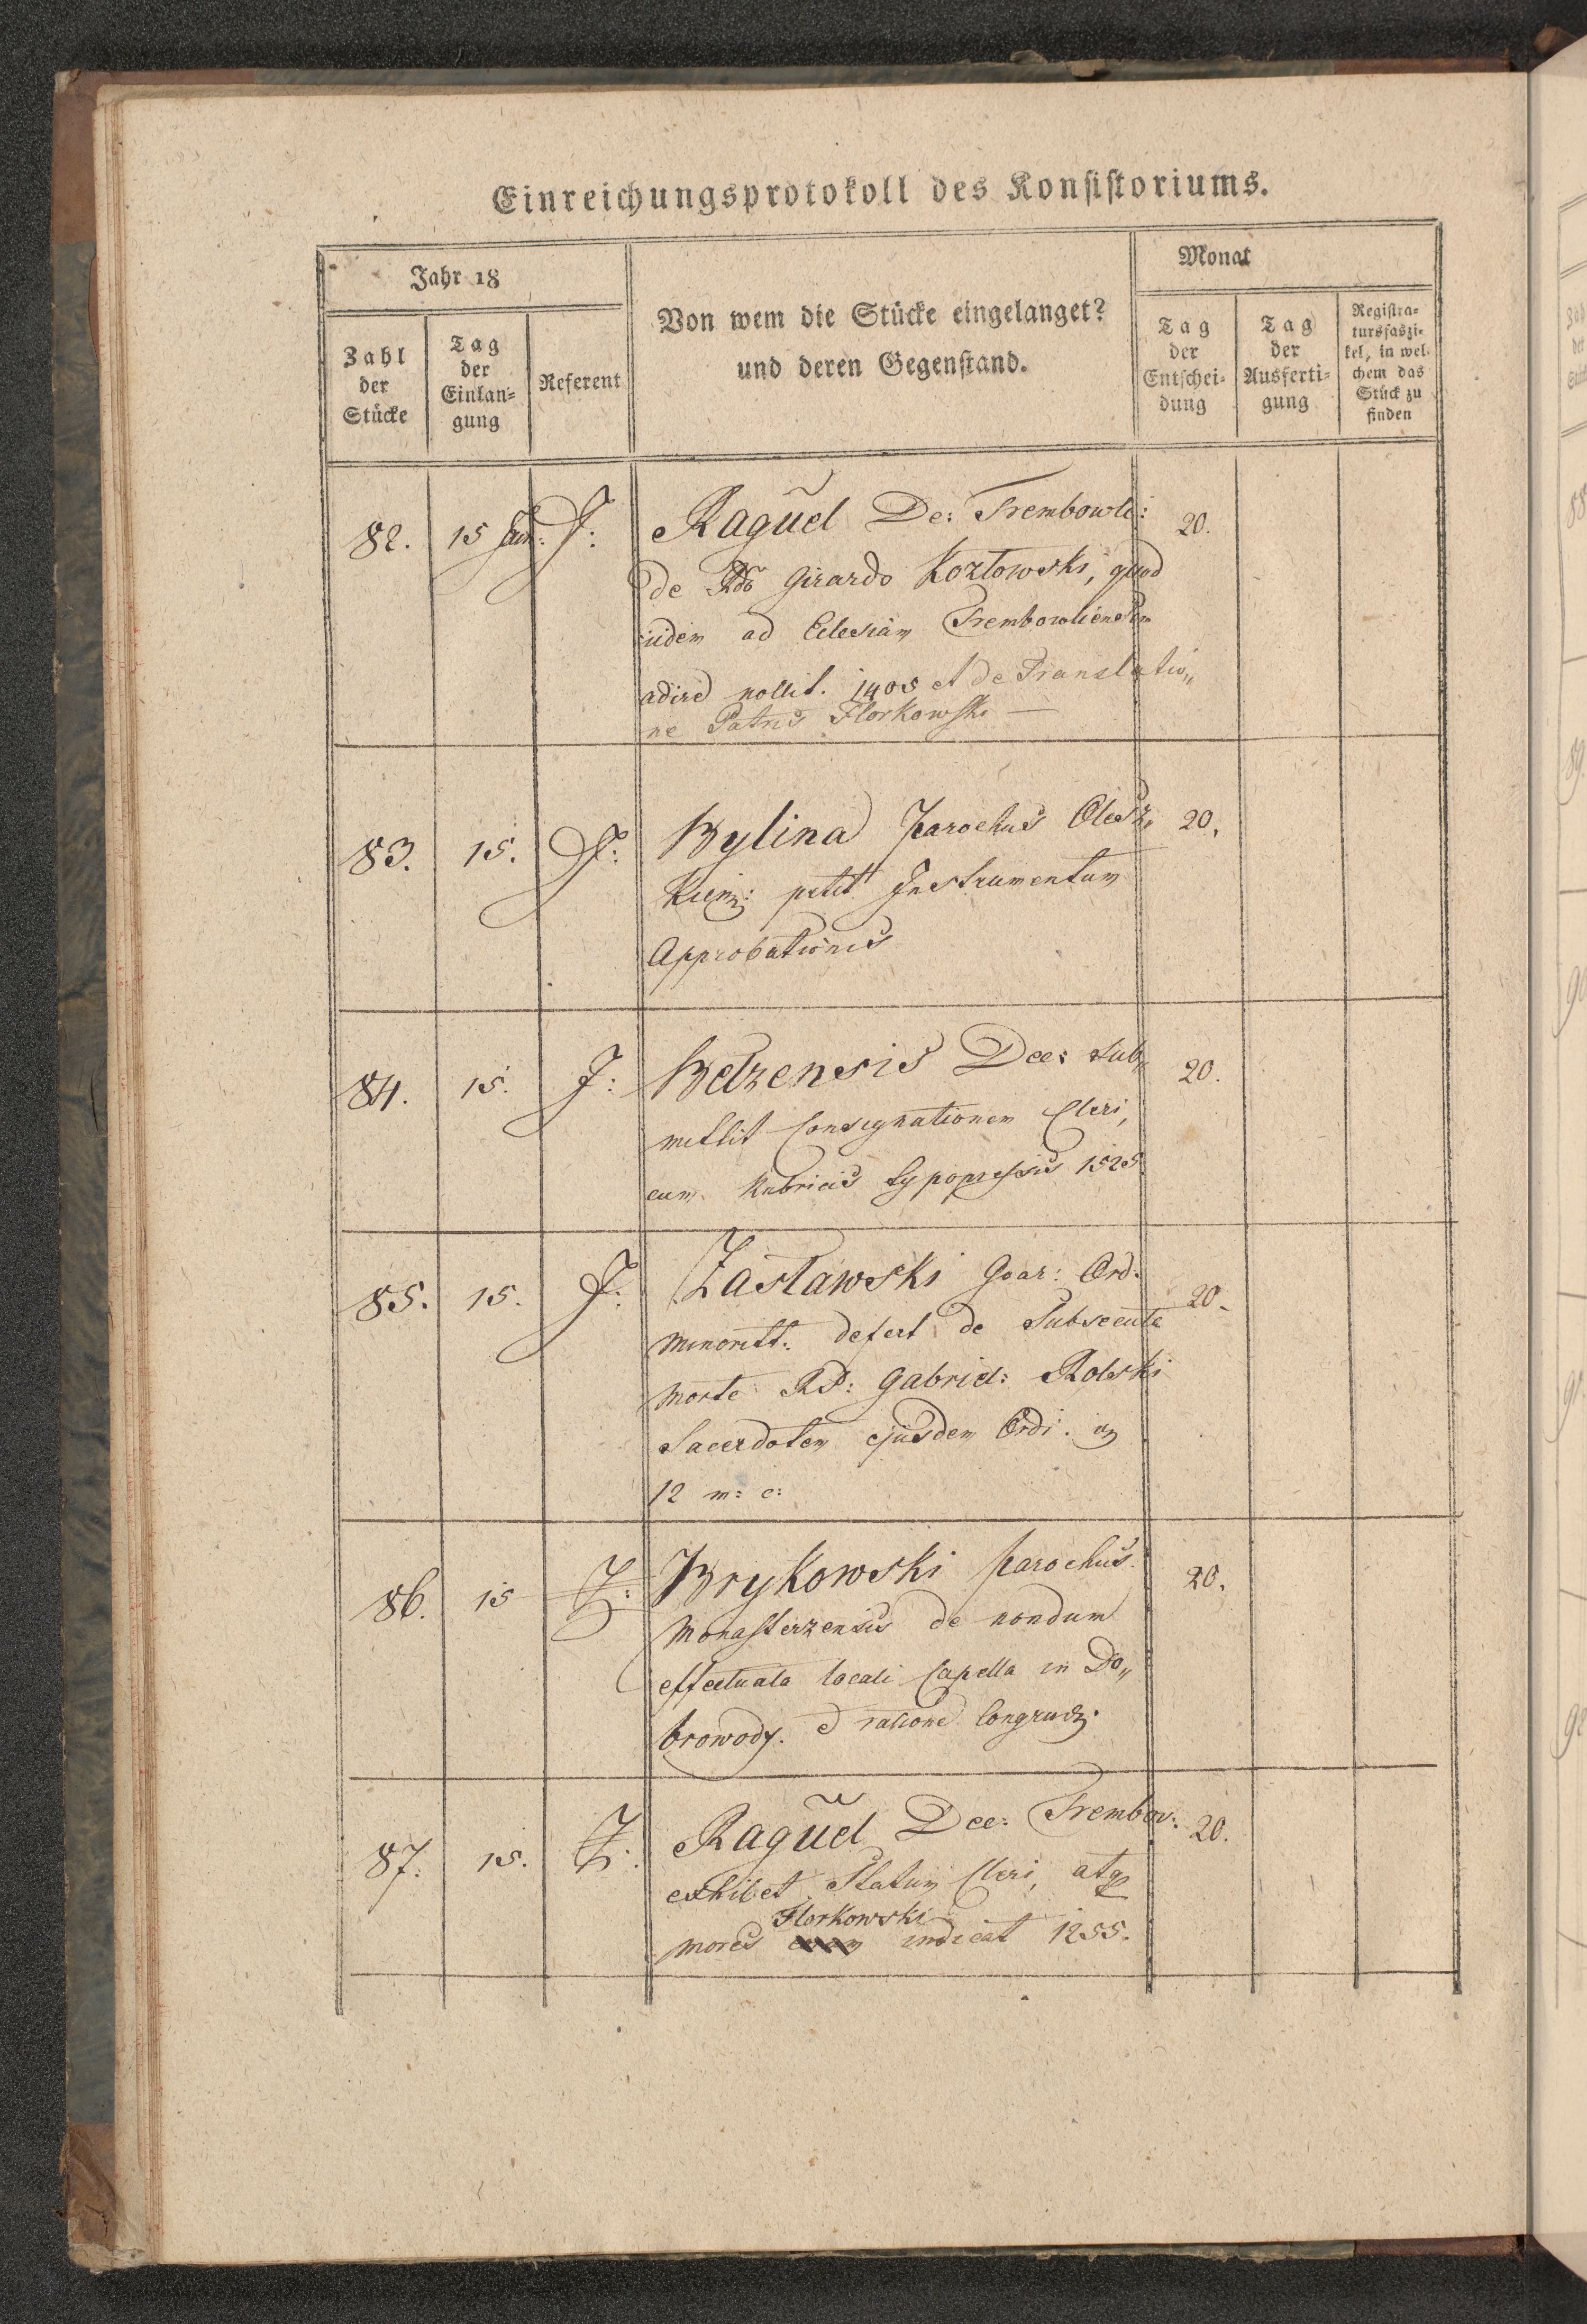 Einreichungsprotokoll des Konsistoriums.
Jahr 18
Monat
Zahl der Stücke
Tag der Einlan-gung
Referent
Von wem die Stücke eingelanget?
und deren Gegenstand.
Tag der Entschei-dung
Tag der Ausferti-gung
Registra-tursfaszi-kel, in wel-chem das Stück zu finden
82. 15 Jan: J: Raguel De: Trembowle: 20.
de Rdo Girardo Kozłowski, quod
iidem ad Eclesiam Trembowliensem
adire nollit. 1405 et de Translatio„
ne Patris Florkowski —
83. 15. J: Bylina Parochus Olesz, 20.
Kienz: petit Instrumentum
Approbationis
84. 15. J: Belzensis Dec: sub„ 20.
mittit Consignationem Cleri,
cum Rubricis typopressis 1525
85. 15. J: Zasławski Guar: Ord: 20.
Minoritt: defert de Subsecuta
morte RP: Gabriel: Rolski
Sacerdotem ejusdem Ordi:
12 m: c:
86. 15 Z: Brykowski parochus 20.
Monasterzensis de nondum
effectuata locali Capella in Do„
browody. ratione Congruae.
87. 15. Z: Raguel Dec: Trembow: 20.
exhibet Statum Cleri, atq
Florkowski
mores indicat 1255.